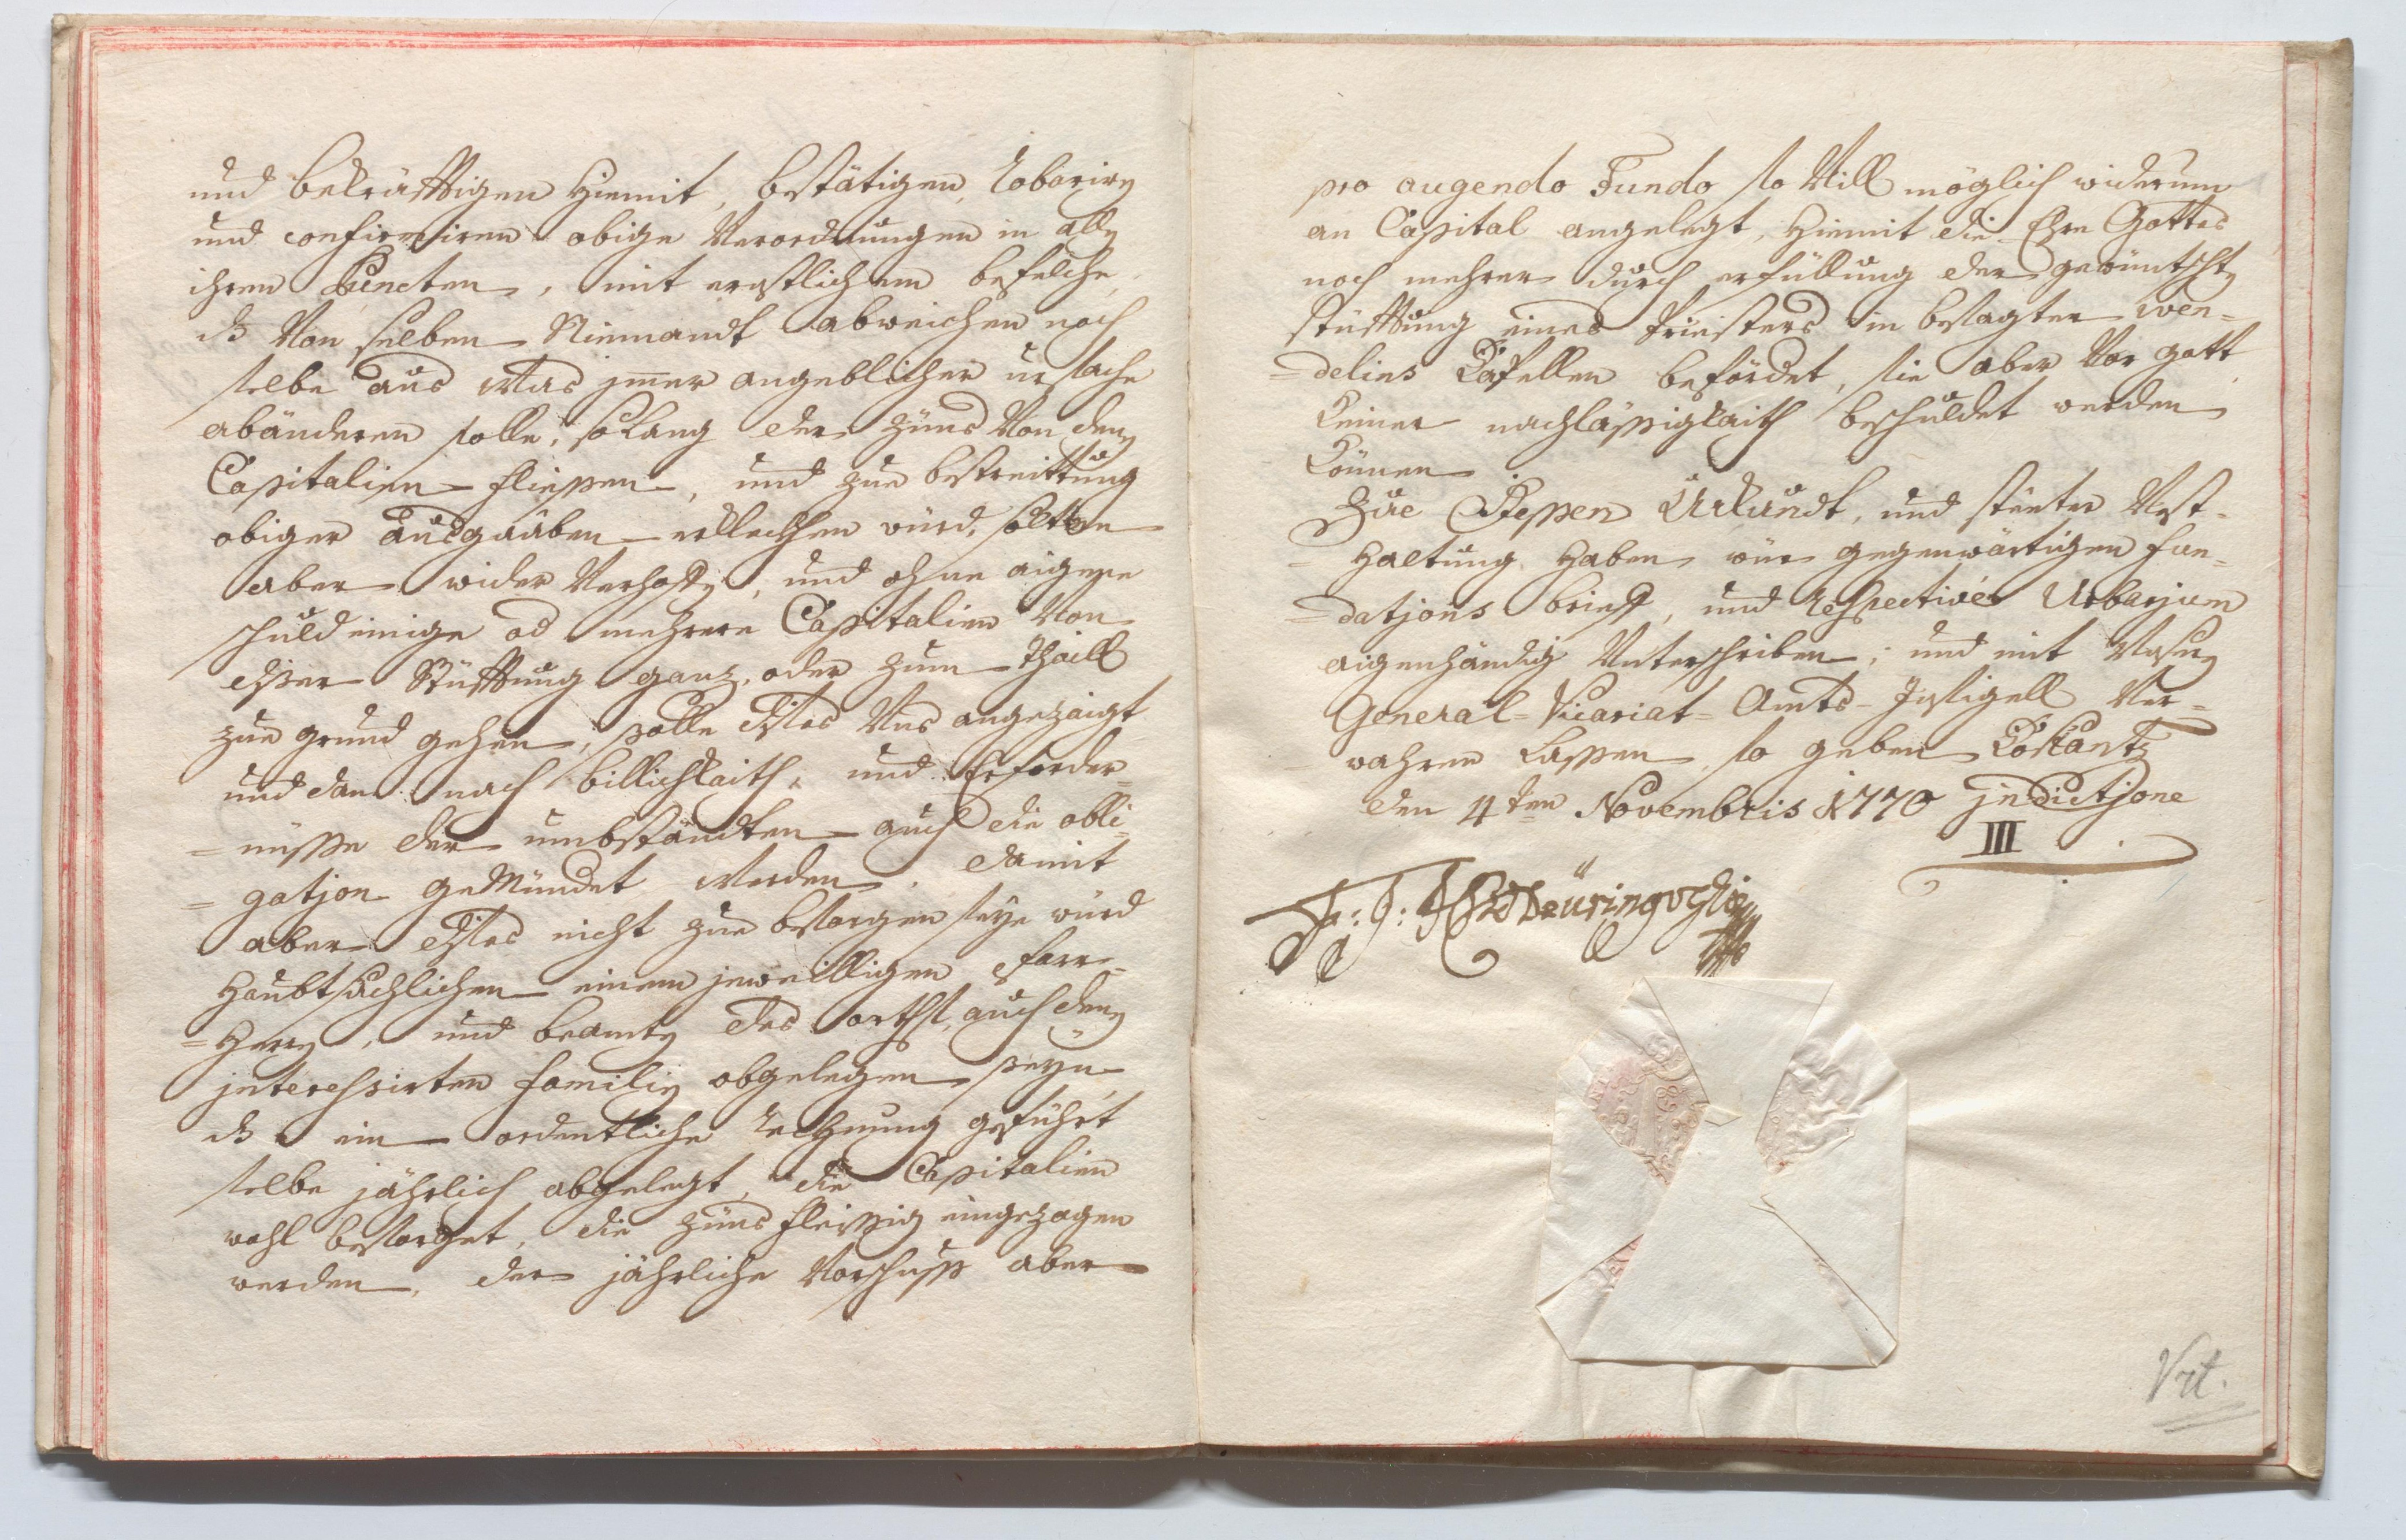 und bekräfftigen hiemit, bestätigen, roboriren
und confirmiren obige Verordnungen in allen
ihren Puncten, mit ernstlichem befelche,
dß Von selben Niemandt abweichen noch
selbe aus Was jmer angeblicher ursache
abänderen solle, solang der Züns Von denen
Capitalien fliessen, und zue bestreittung
obiger Ausgaaben erklechen würd, solten
aber wider Verhoffen, und ohne aigene
schuld einige od mehrere Capitalien Von
diser Stüfftung ganz, oder zum Thaill
zue grund gehen, solle dises Uns angezaigt
und dan nach billichkaith, und Erforder=
=nusse der umbständten auch die obli=
=gatjon geMündet werden. damit
aber dises nicht zue besorgen seye würd
Haubtsächlichen einem jeweilligen Pfarr=
=Herrn, und beamten des orths, auch denen
interessirten familien obgelegen seyn
dß ein ordentliche rechnung geführt
selbe jährlich abgelegt, die Capitalien
wohl besorget, die Züns fleissig eingezogen
werden, der jährliche Vorschuss aber
pro augendo Fundo so Vill möglich widerum
an Capital angelegt, Hiemit die Ehre Gottes
noch mehrer durch erfüllung der gewüntschten
stüfftung eines Priesters in besagter wen=
=delins Capellen befördet, sie aber Vor gott
keiner nachlässigkaith beschuldet werden
können
Zue Dessen Urkundt, und steeter Vest=
=Haltung haben wür gegenwärtigen fun=
=dations brieff, und respectivè Urbarjum
aigenhändig Unterschriben, und mit Unserem
General=Vicariat=Amts=Insigell Ver=
wahren Lassen so geben Costantz
den 4ten Novembris 1770 jndictjone
III
Vrt.